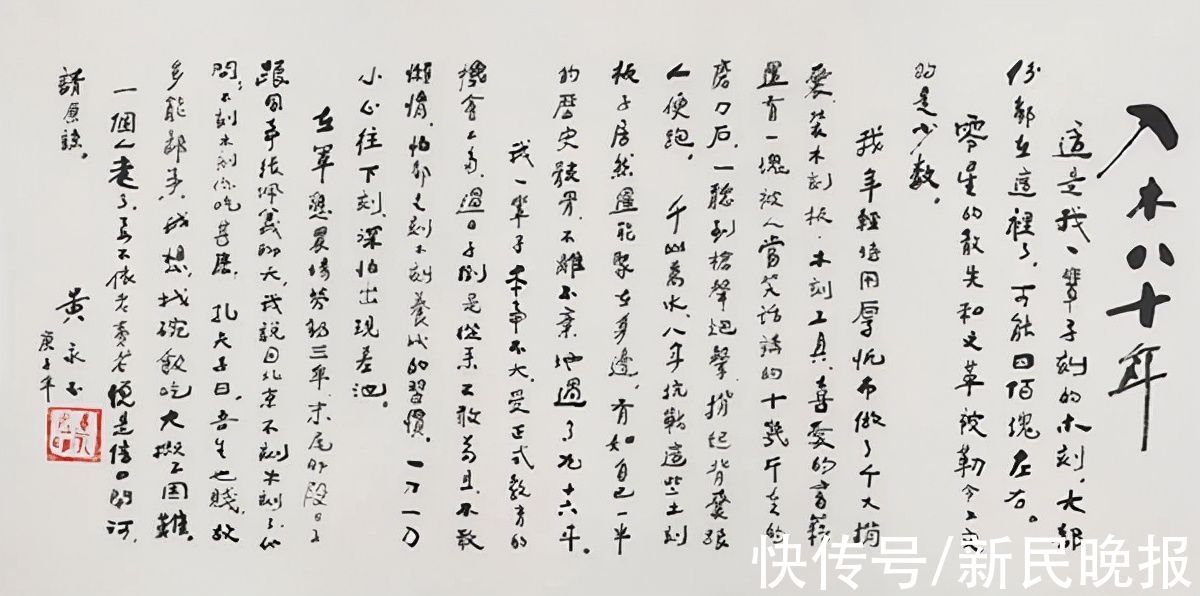 入木八十年
這是我一輩子刻的木刻,大部
份都在這裡了,可能四佰塊左右。
零星的散失和文革被勒令上交
的是少數。
我年輕時用厚帆布做了个大揹
囊,裝木刻板,木刻工具,喜愛的書籍
還有一塊被人當笑話講的十幾斤重的
磨刀石,一聽到槍聲炮聲,揹起背囊跟
人便跑。千山萬水,八年抗戰這些木刻
板子居然還能聚在身邊,有如自己一半
的歷史骸骨,不離不棄地過了九十六年。
我一輩子本事不大,受正式教育的
機會不多,過日子倒是從來不敢苟且,不敢
懶惰,怕都是刻木刻養成的習慣。一刀一刀
小心往下刻,深怕出現差池。
在軍墾農場勞動三年,末尾那段日子
跟同事張佩義聊天,我說回北京不刻木刻了。他
問:不刻木刻你吃甚麼,孔夫子曰,吾生也賤,故
多能鄙事,我想,找碗飯吃大概不困難。
一個人老了,若不依老賣老便是信口開河,
請原諒。
黃永玉
庚子年
快传号/新民晚报